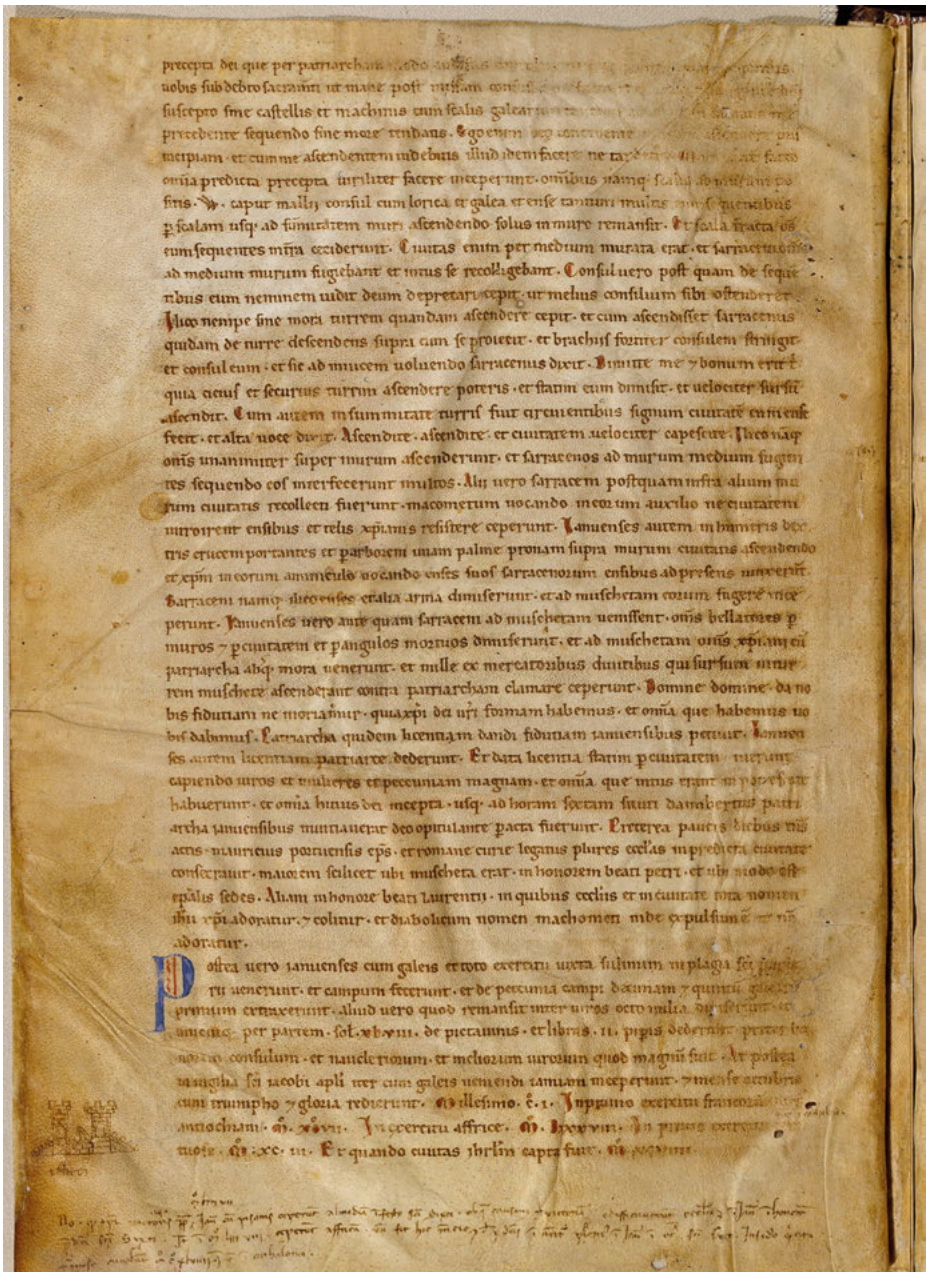 precepta dei que per patriarcham
uobis sub debito sacramti ut mane post missam
suscepto sine castellis et machinis cum scalis galearum
precedente sequendo sine more tendatis. Ego enim
incipiam. et cum me ascendentem uidebitis illud idem facere ne tardetis
omia predicta precepta uiriliter facere inceperunt. omibus namq; scalis ad murum po
sitis. W. caput mallij consul cum lorica et galea et ense tantum multis eum sequentibus
p scalam usq; ad sumitatem muri ascendendo solus in muro remansit. Et scala fracta os
eum sequentes infra ceciderunt. Ciuitas enim per medium murata erat. et sarraceni
ad medium murum fugiebant et intus se recolligebant. Consul uero post quam de seque
tibus eum neminem uidit deum depretari cepit. ut melius consilium sibi ostenderet
Ilico nempe sine mora turrem quandam ascendere cepit. et cum ascendisset sarracenus
quidam de turre descendens supra eum se proiecit. et brachijs fortiter consulem stringit
et consul eum. et sic ad inuicem uoluendo sarracenus dixit. Dimitte me 7 bonum erit t
quia cicius et securius turrim ascendere poteris. et statim eum dimisit. et uelociter sursu
ascendit. Cum autem in summitate turris fuit circuentibus signum ciuitate cum ense
fecit. et alta uoce dixit. Ascendite. ascendite. et ciuitatem uelociter capescite. Ilico naq;
oms unanimiter super murum ascenderunt. et sarracenos ad murum medium fugien
tes sequendo eos interfecerunt multos. Alij uero sarraceni postquam infra alium mu
rum ciuitatis recollecti fuerunt. macometum uocando in eorum auxilio ne ciuitatem
introirent ensibus et telis xpianis resistere ceperunt. Ianuenses autem in humeris dex
tris crucem portantes et p arborem unam palme pronam supra murum ciuitatis ascendendo
et xpm in eorum amminiculo uocando enses suos sarracenorum ensibus ad presens iunxerut
Sarraceni namq; ilico enses et alia arma dimiserunt. et ad muschetam eorum fugere ince
perunt. Ianuenses uero ante quam sarraceni ad muschetam uenissent. oms bellatores p
muros 7 p ciuitatem et p angulos mortuos dimiserunt. et ad muschetam oms xpiani cu
patriarcha absq; mora uenerunt. et mille ex mercatoribus diuitibus qui sursum in tur
rem muschete ascenderant contra patriarcham clamare ceperunt. Domine domine. da no
bis fidutiam ne moriamur. quia xpi dei uri formam habemus. et omia que habemus uo
bis dabimus. Patriarcha quidem licentiam dandi fidutiam ianuensibus petiuit. Ianuen
ses autem licentiam patriarce dederunt. Et data licentia statim p ciuitatem iuerunt
capiendo uiros et mulieres et peccuniam magnam. et omia que intus erant in potestate
habuerunt. et omia huius dei incepta. usq; ad horam sextam sicuti daimbertus patri
archa ianuensibus nuntiauerat deo opitulante pacta fuerunt. Preterea paucis diebus
actis. mauricius portuensis eps. et romane curie legatus plures ecclas in predicta ciuitate
consecrauit. maiorem scilicet ubi muscheta erat. in honorem beati petri. et ubi modo est
epalis sedes. Aliam in honore beati laurentij. in quibus ecclijs et in ciuitate tota nomen
ihu xpi adoratur. 7 colitur. et diabolicum nomen machometi inde expulsum e
adoratur.
Postea uero ianuenses cum galeis et toto exercitu iuxta sulinum in plagia sci
rii uenerunt. et campum fecerunt. et de peccunia campi decimam 7 quintu
primum extraxerunt. aliud uero quod remansit inter uiros octo milia diuiserunt. et
unicuiq; per partem. sol. xlviii. de pictauinis. et libras. ii. piperis dederunt preter ho
norem consulum. et naucleriorum. et meliorum uirorum quod magnu fuit. At postea
in uigilia sci iacobi apli iter cum galeis ueniendi ianuam inceperunt. 7 mense octubris
cum triumpho 7 gloria redierunt. Millesimo. c. i. In primo exercitu francorum
antiochiam. M. xcvii. In exercitu affrice. M. lxxxviii. In primo exercitu
tuose. M. xc. iii. Et quando ciuitas ihrlm capta fuit. M